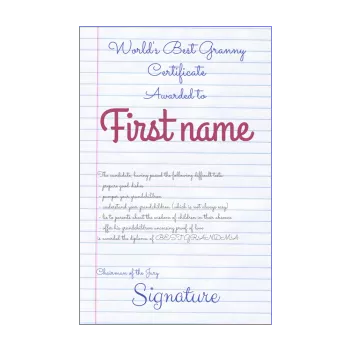 World's Best Granny
Certificate
Awarded to
First name
The candidate, having passed the following difficult tests:
prepare good dishes
pamper your grandchildren
understand your grandchildren (which is not always easy)
lie to parents about the wisdom of children in their absence
offer his grandchildren unceasing proof of love
is awarded the diploma of BEST GRANDMA
Chairman of the Jury
Signature